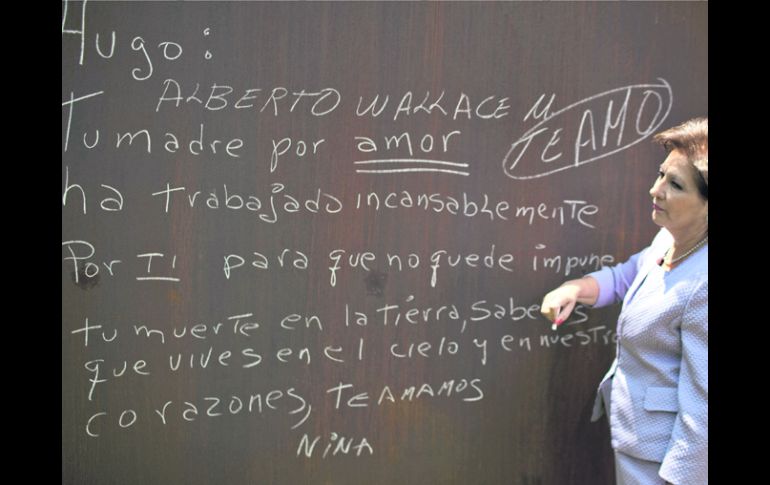 Hugo:
ALBERTO WALLACE M
TE AMO
Tu madre por amor
ha trabajado incansablemente
Por TI para que no quede impune
tu muerte en la tierra, Sabemos
que vives en el cielo y en nuestro
corazones, TE AMAMOS
NINA